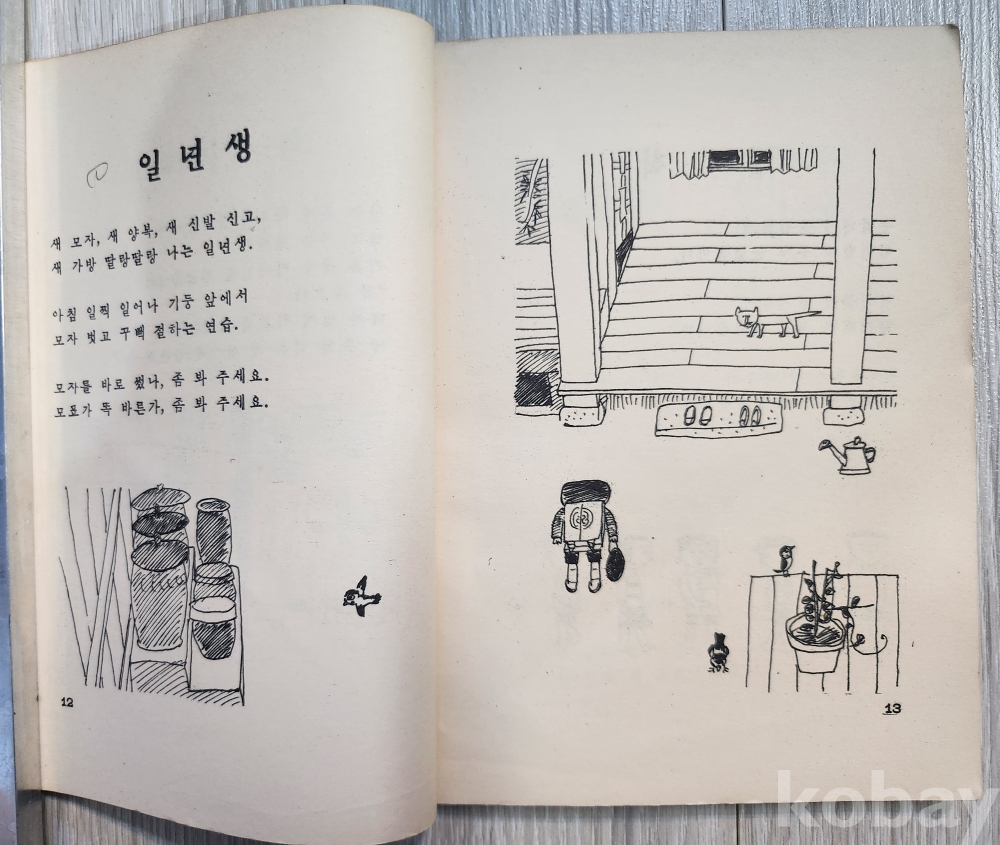 일 년 생
새 모자, 새 양복, 새 신발 신고,
새 가방 딸탕딸탕 나는 일년생.
아침 일찍 일어나 기둥 앞에서
모자 벗고 꾸뻑 절하는 연습.
모자를 바로 썼나, 좀 봐 주세요.
모표가 똑 바른가, 좀 봐 주세요.
12
13
kobay